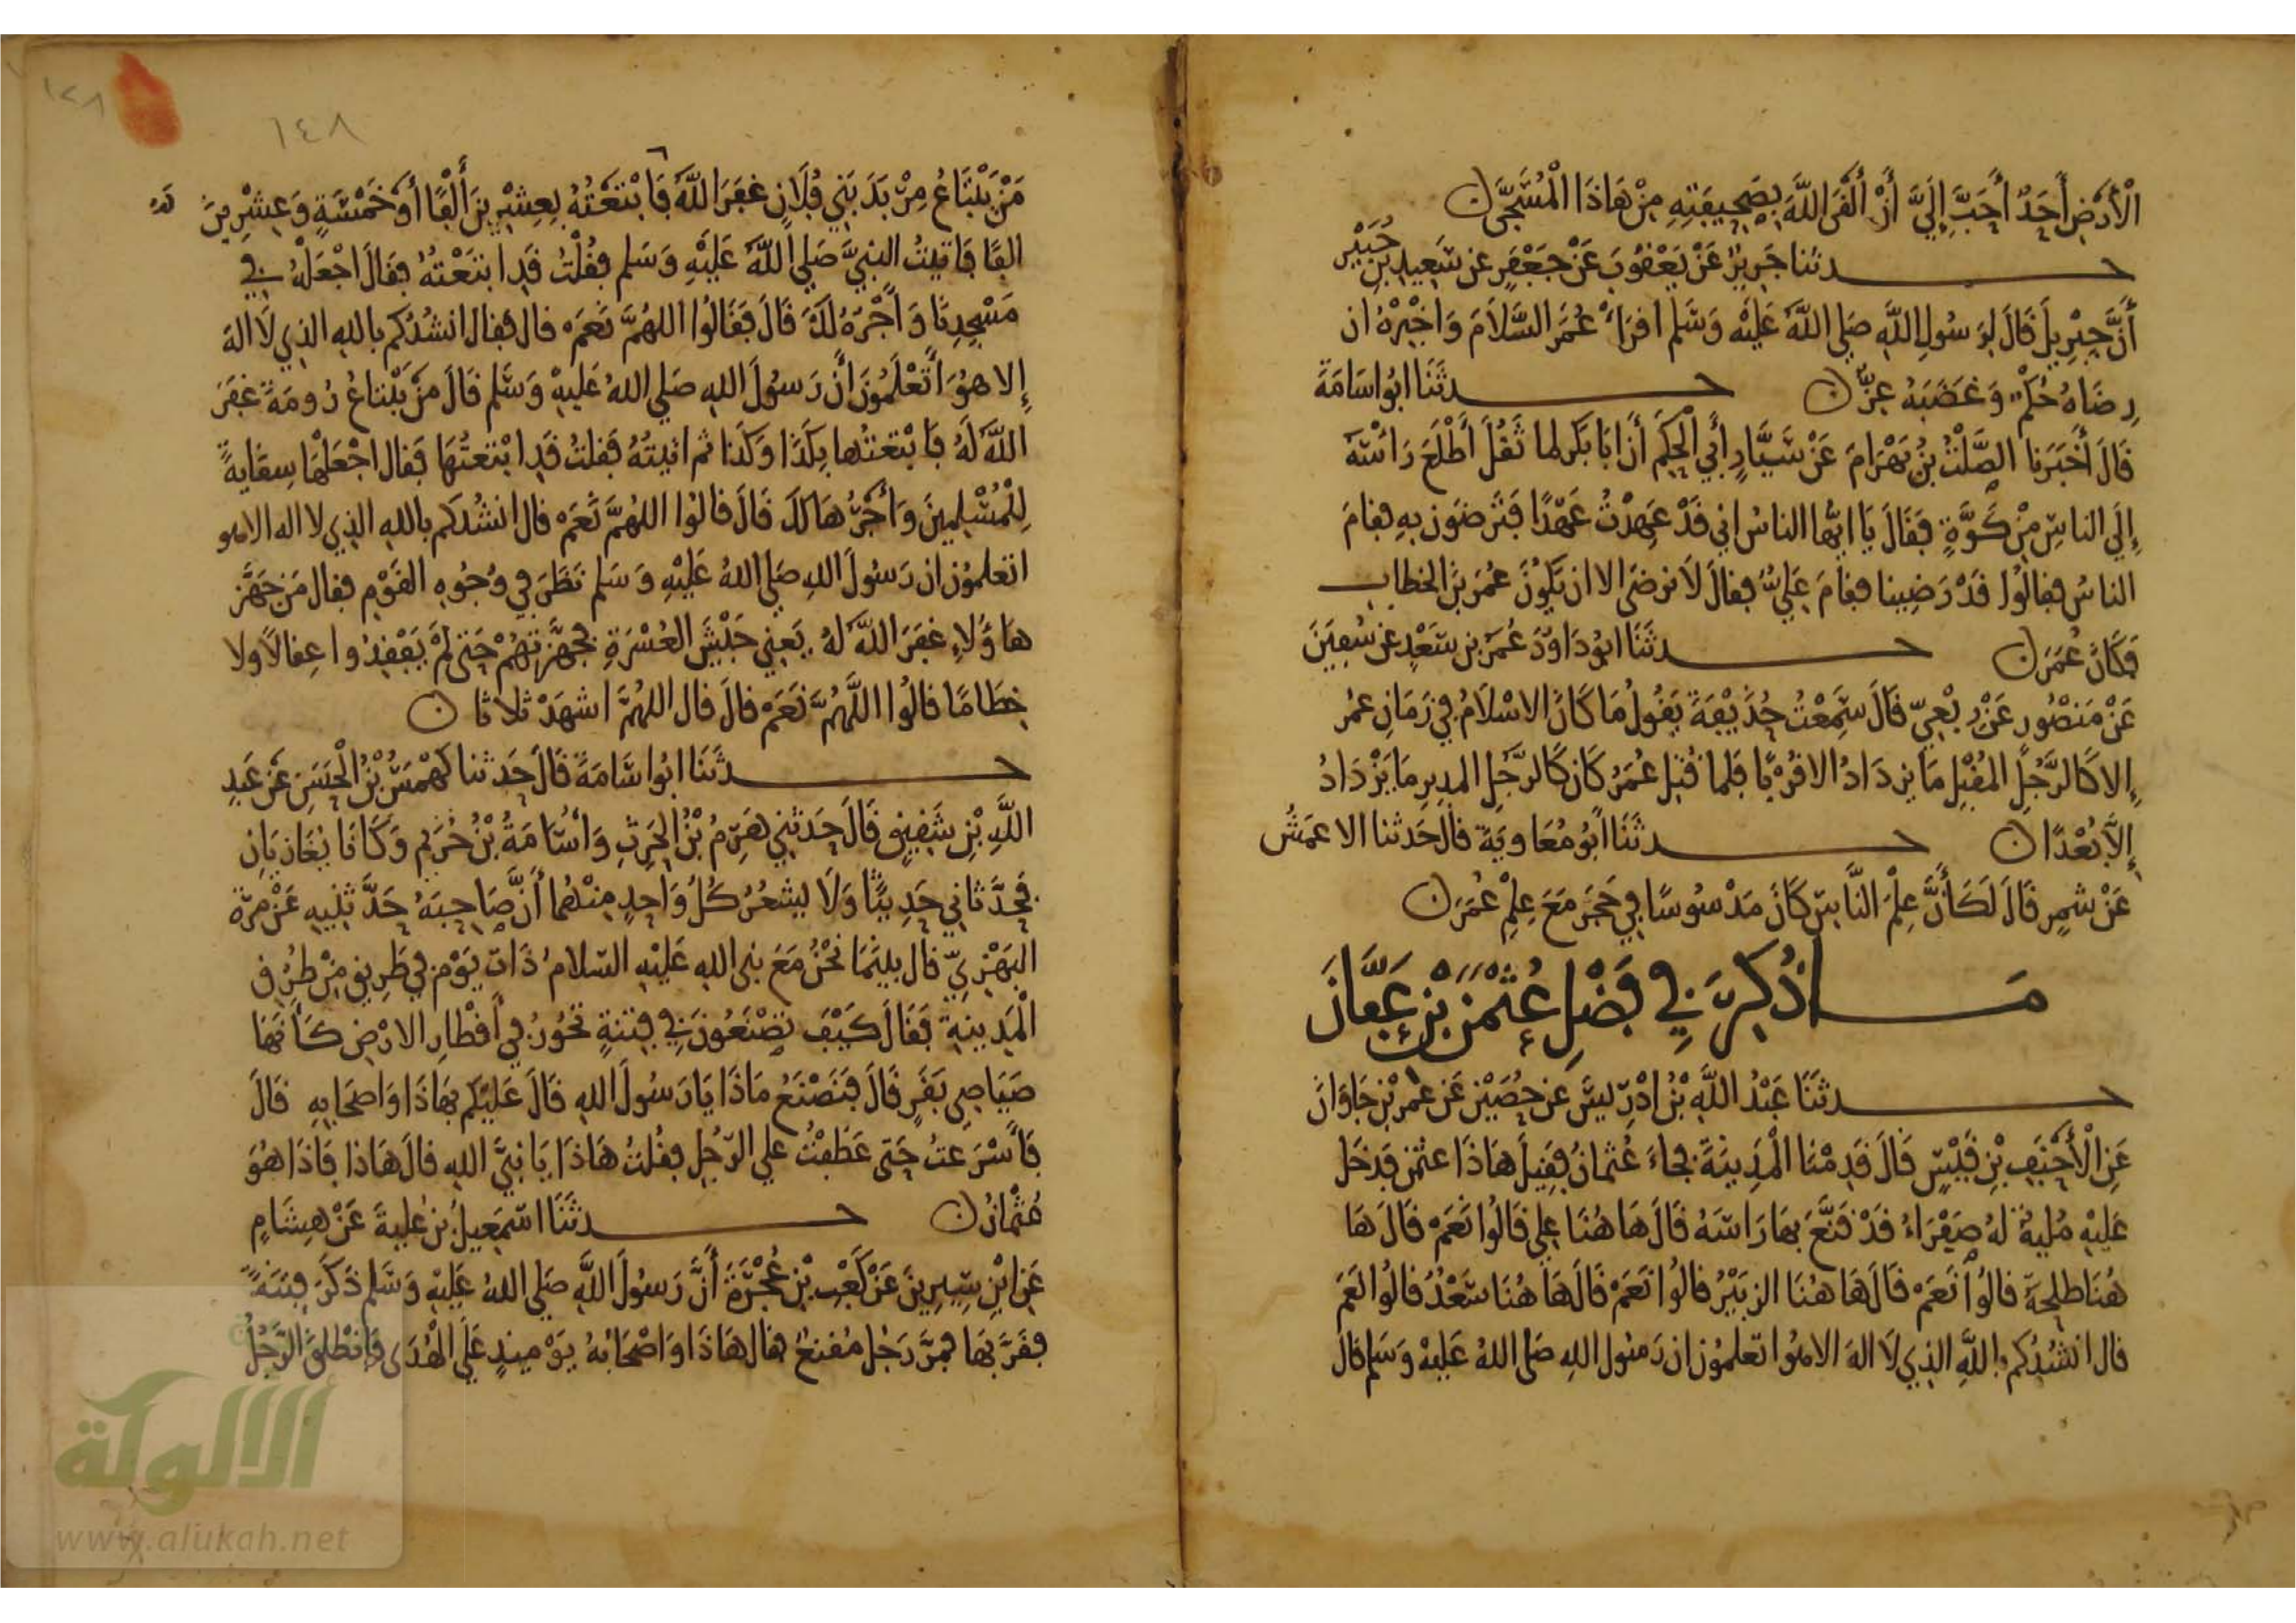 الْأَرْضِ أَحَدٌ أَحَبَّ إِلَيَّ أَنْ أَلْقَى اللَّهَ بِصَحِيفَتِهِ مِنْ هَاذَا الْمُسَجَّى
حدثنا جَرِيرٌ عَنْ يَعْقُوبَ عَنْ جَعْفَرٍ عن سَعِيدِ بْنِ جُبَيْرٍ
أَنَّ جِبْرِيلَ قَالَ لِرَسُولِ اللَّهِ صَلي اللَّهُ عَلَيْهِ وَسَلم اقرَأ عُمَرَ السَّلَامَ وَاخْبِرْهُ ان
رِضَاهُ حُكْمٌ وَغَضَبَهُ عِزٌّ حدثَنَا ابُو اسَامَةَ
قَالَ أَخْبَرَنا الصَّلْتُ بْنُ بَهْرَامَ عَنْ سَيَّارٍ أَبِي الْحَكَمِ أَنَّ ابَا بَكر لما ثَقُلَ أَطْلَعَ رَاسَهُ
إِلَى الناسِ مِنْ كُوَّةٍ فَقَالَ يَا ايُّها الناسُ اني قَدْ عَهِدْتُ عَهْدًا فَتَرضَوْن بِهِ فقامَ
الناسُ فقالُوا قَدْ رَضِينا فقامَ عَلِيٌّ فقالَ لَا نرضَى الا ان يَكُونَ عُمَرَ بْنَ الخطاب
فَكَانَ عُمَرَ حدثَنَا ابُو دَاوُدَ عُمَرُ بن سَعْدٍ عن سُفيَنَ
عَنْ مَنصُورٍ عَنْ رِبْعِيّ قَالَ سَمِعْتُ حُذَيْفَةَ يَقُولُ مَا كَانَ الاسْلَامُ فِي زَمَانِ عُمَر
إِلا كَالرَّجُلِ المقْبِلِ مَا يزدَادُ الا قُرْبًا فَلما قُتِل عُمَرُ كَانَ كَالرَّجُلِ المدبِرِ مَا يَزْدَادُ
إِلَّا بُعْدًا حدثَنَا أَبُو مُعَاويَةَ قالَ حَدثنا الاعمَشُ
عَنْ شمِرٍ قَالَ لَكَأَنَّ عِلْمَ النَّاسِ كَانَ مَدْسُوسًا فِي جُحر مَعَ عِلْمِ عُمَرَ
مَا ذُكِرَ فِي فَضْلِ عُثْمَنَ بْنِ عَفَّانَ
حدثَنَا عَبْدُ اللَّهِ بْنُ ادْرِيسَ عن حُصَيْنٍ عَن عمر بْنِ جَاوَانَ
عَنِ الْأَحْنَفِ بْنِ قَيْسٍ قَالَ قَدِمْنَا الْمَدِينَةَ فجاءَ عُثمانُ فَقِيلَ هَاذَا عثمن فَدخَل
عَلَيْهِ مُليةٌ لهُ صَفْرَاءُ قَدْ قَنَّعَ بهَا رَاسَهُ قَالَ هَاهُنَا عِلي قَالُوا نَعَمْ قَالَ هَا
هُنَا طلحةُ قالُوا نَعَمْ قَالَ هَاهُنَا الزبَيْرُ قالُوا نَعَمْ قَالَ هَا هُنَا سَعْدٌ قالُوا نَعَم
قال انشُدُكم باللَّهِ الذِي لَا الهَ الا هو اتعلمُون ان رَسُول اللهِ صَلى اللهُ عَلَيْهِ وَسَلم قال
١٢٨
١٤٨
مَنْ يَبْتَاعُ مِرْبَدَ بَنِي فُلَانٍ غفَرَ اللَّهُ لَهُ فَابْتَعْتُهُ بِعِشْرِينَ أَلْفًا أَوْ خَمْسَةٍ وَعِشْرِينَ
الفًا فَاتيتُ النبيَّ صَلي اللَّهُ عَلَيْهِ وَسَلم فقُلْتُ قَدِ ابتَعْتُهُ فقَالَ اجْعَلْهُ فِي
مَسْجِدِنَا وَأَجْرُهُ لَكَ قَالَ فَقَالُوا اللهُمَّ نَعَمْ قال فقال انشُدُكم بالله الذي لَا الهَ
إِلا هُوَ أَتَعْلَمُونَ انَّ رَسُولَ اللهِ صَلي اللهُ عَليهْ وَسَلم قَالَ مَنْ يَبْتاعُ رُومَةَ غفَرَ
اللَّهُ لَهُ فَابْتعتُها بِكَذَا وَكَذا ثم اتيتُهُ فَقلتُ قَدِ ابْتعتُهَا فَقال اجْعَلْهَا سِقَايةً
لِلْمُسْلِمِينَ وَأَجْرُهَا لكَ قَالَ قالُوا اللهُمَّ نَعَمْ قال انشُدُكم باللهِ الذِي لا اله الا هو
اتعلمُون ان رَسُولَ اللهِ صَلي اللهُ عَلَيْهِ وَسَلم نَظَرَ فِي وُجُوهِ القَوْمِ فقال مَن جَهَّز
هَاؤُلاءِ غفَرَ اللَّهُ لهُ يَعنِي جَيْشَ العُسْرَةِ فجهَّزتُهُمْ حَتى لَمْ يَفْقِدُوا عِقالًا ولا
خِطَامًا قالُوا اللَّهُمَّ نَعَمْ قالَ قال اللهُمَّ اشهَدْ ثلاثا
حدثَنَا ابُو اسَامَةَ قَالَ حَدثنا كهْمَسُ بْنُ الْحَسَنِ عَنْ عَبدِ
اللَّهِ بْنِ شَقِيقٍ قَالَ حَدثَنِي هَرِمُ بْنُ الحَرِثِ وَأُسَامَةُ بْنُ خُرَيمٍ وَكَانَا يُغَازِيَانِ
فَحَدَّثَانِي حَدِيثًا وَلَا يشعُرُ كُلُّ وَاحِدٍ مِنهُمَا أَنَّ صَاحِبَهُ حَدَّثَنِيهِ عَنْ مرةَ
البَهْزِيِّ قال بينَمَا نَحْنُ مَعَ نبى اللهِ عَلَيْهِ السّلامُ ذَاتَ يَوْمٍ فِي طَرِيقٍ مِنْ طرُقِ
الْمَدِينةِ فَقَالَ كَيْفَ تَصْنَعُونَ فِي فِتنةٍ تَثورُ فِي أَقْطارِ الارْضِ كَأَنَّهَا
صَيَاصِي بَقَرٍ قَالَ فَنَصْنَعُ مَاذَا يَا رَسُولَ اللهِ قَالَ عَلَيْكم بهَاذَا وَاصحَابِهِ قَالَ
فَأَسْرَعتُ حَتى عَطَفْتُ علي الرّجُلِ فقُلتُ هَاذَا يَا نبيَّ اللهِ قالَ هَاذا فَاذَا هُوَ
عُثمَانُ حدثَنَا اسمَعِيلُ بْنُ عُلية عَنْ هِشَامٍ
عَنِ ابْنِ سِيرِينَ عَنْ كَعْبِ بْنِ عُجْرَةَ أَنَّ رَسُولَ اللَّهِ صَلي اللهُ عَلَيْهِ وَسَلم ذَكَرَ فِتنَةً
فقَرَّبهَا فمرَّ رَجُل مُقنعٌ فقال هَاذَا وَاصْحَابُهُ يَوْمِيذٍ عَلَى الْهُدَى فَانْطَلَقَ الرَّجُلُ
الألوكة
www.alukah.net